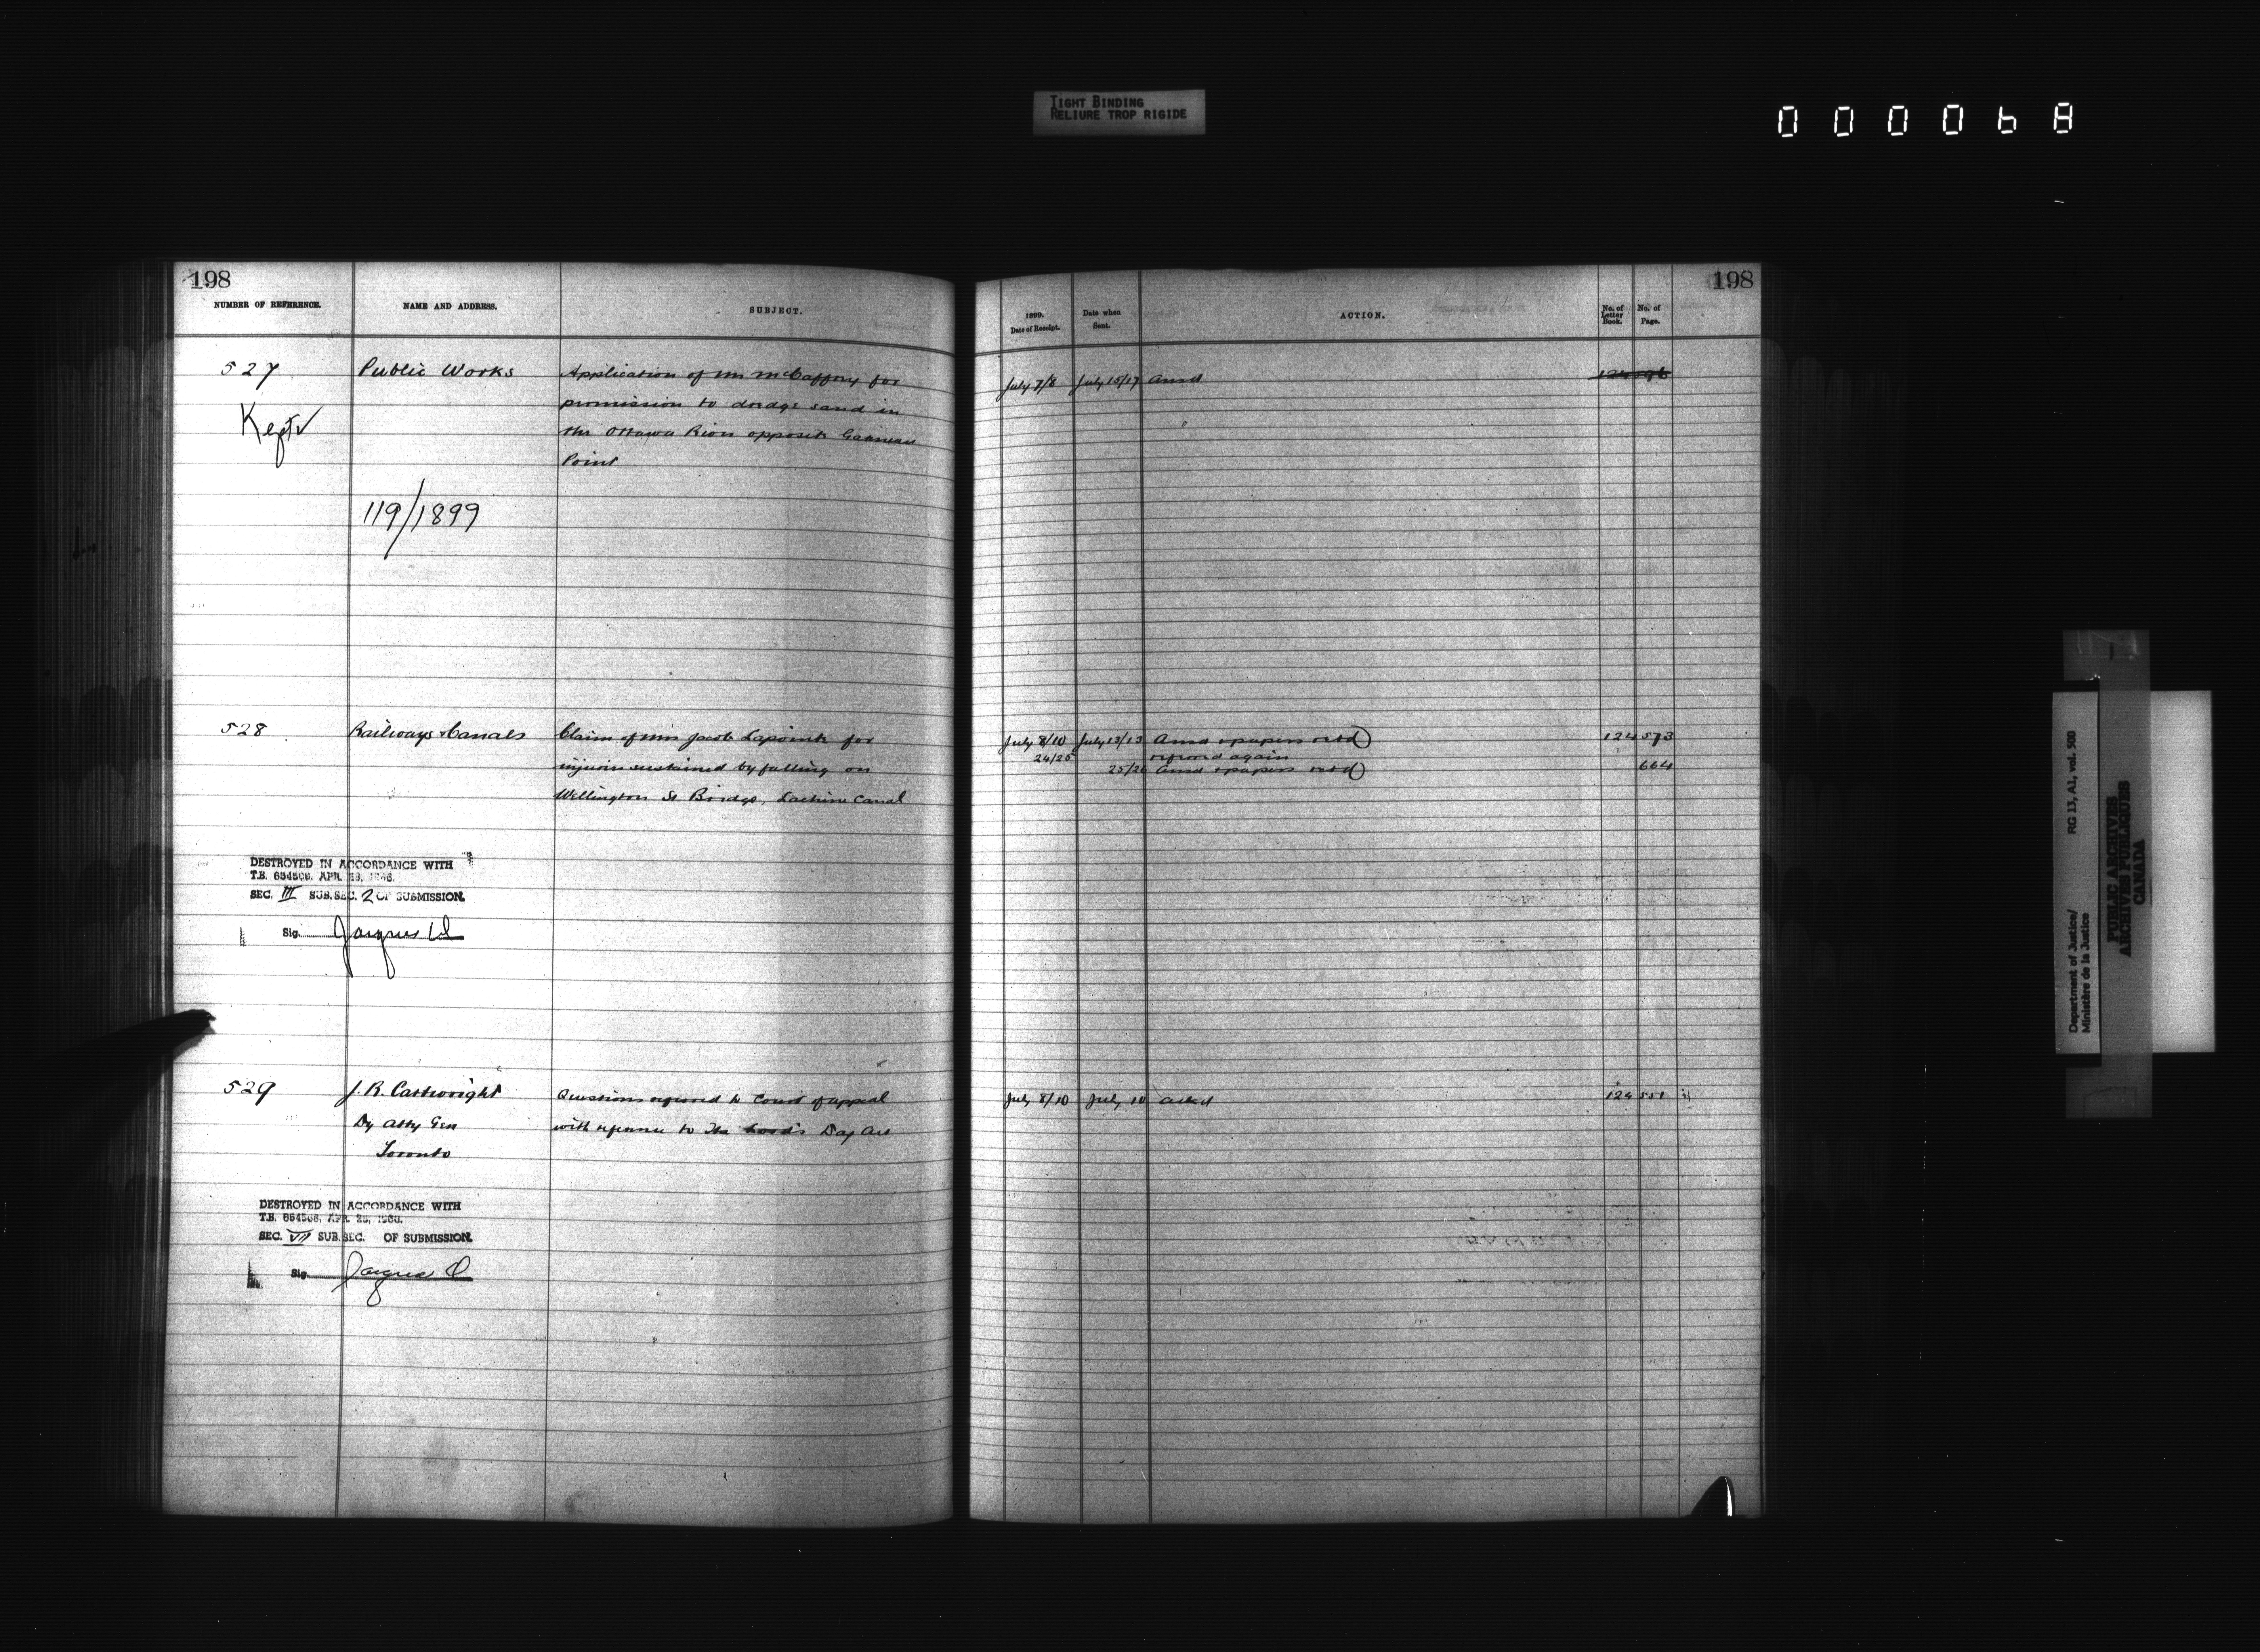 TIGHT BINDING
RELIURE TROP RIGIDE
000068
198
NUMBER OF REFERENCE.
NAME AND ADDRESS.
SUBJECT.
527
Public Works
Application of Mr McCaffrey for
permission to dredge sand in
the Ottawa River opposite Gatineau
Point
Kept
119/1899
528
Railways & Canals
Claim of Mrs Jacob Lapointe for
injuries sustained by falling on
Wellington St Bridge, Lachine Canal
DESTROYED IN ACCORDANCE WITH
T.B. 654506, APR.
SEC. III SUB.SEC. 2 OF SUBMISSION.
Sig. Jacques
529
J. R. Cartwright
Dy Atty Gen
Toronto
Questions referred to Court of appeal
with reference to The Lord's Day Act
DESTROYED IN ACCORDANCE WITH
T.B. 654506, APR.
SEC. VII SUB.SEC. OF SUBMISSION.
Sig. Jacques
198
1899.
Date of Receipt.
Date when
Sent.
ACTION.
No. of
Letter
Book.
No. of
Page.
July 7/8 July 15/17 Ansd
July 8/10 July 13/13 Ansd & papers retd 124 573
24/25 referred again
25/26 Ansd & papers retd 664
July 8/10 July 10 Ackd 124 551
Department of Justice/ RG 13, A1, vol. 500
Ministère de la Justice
PUBLIC ARCHIVES
ARCHIVES PUBLIQUES
CANADA